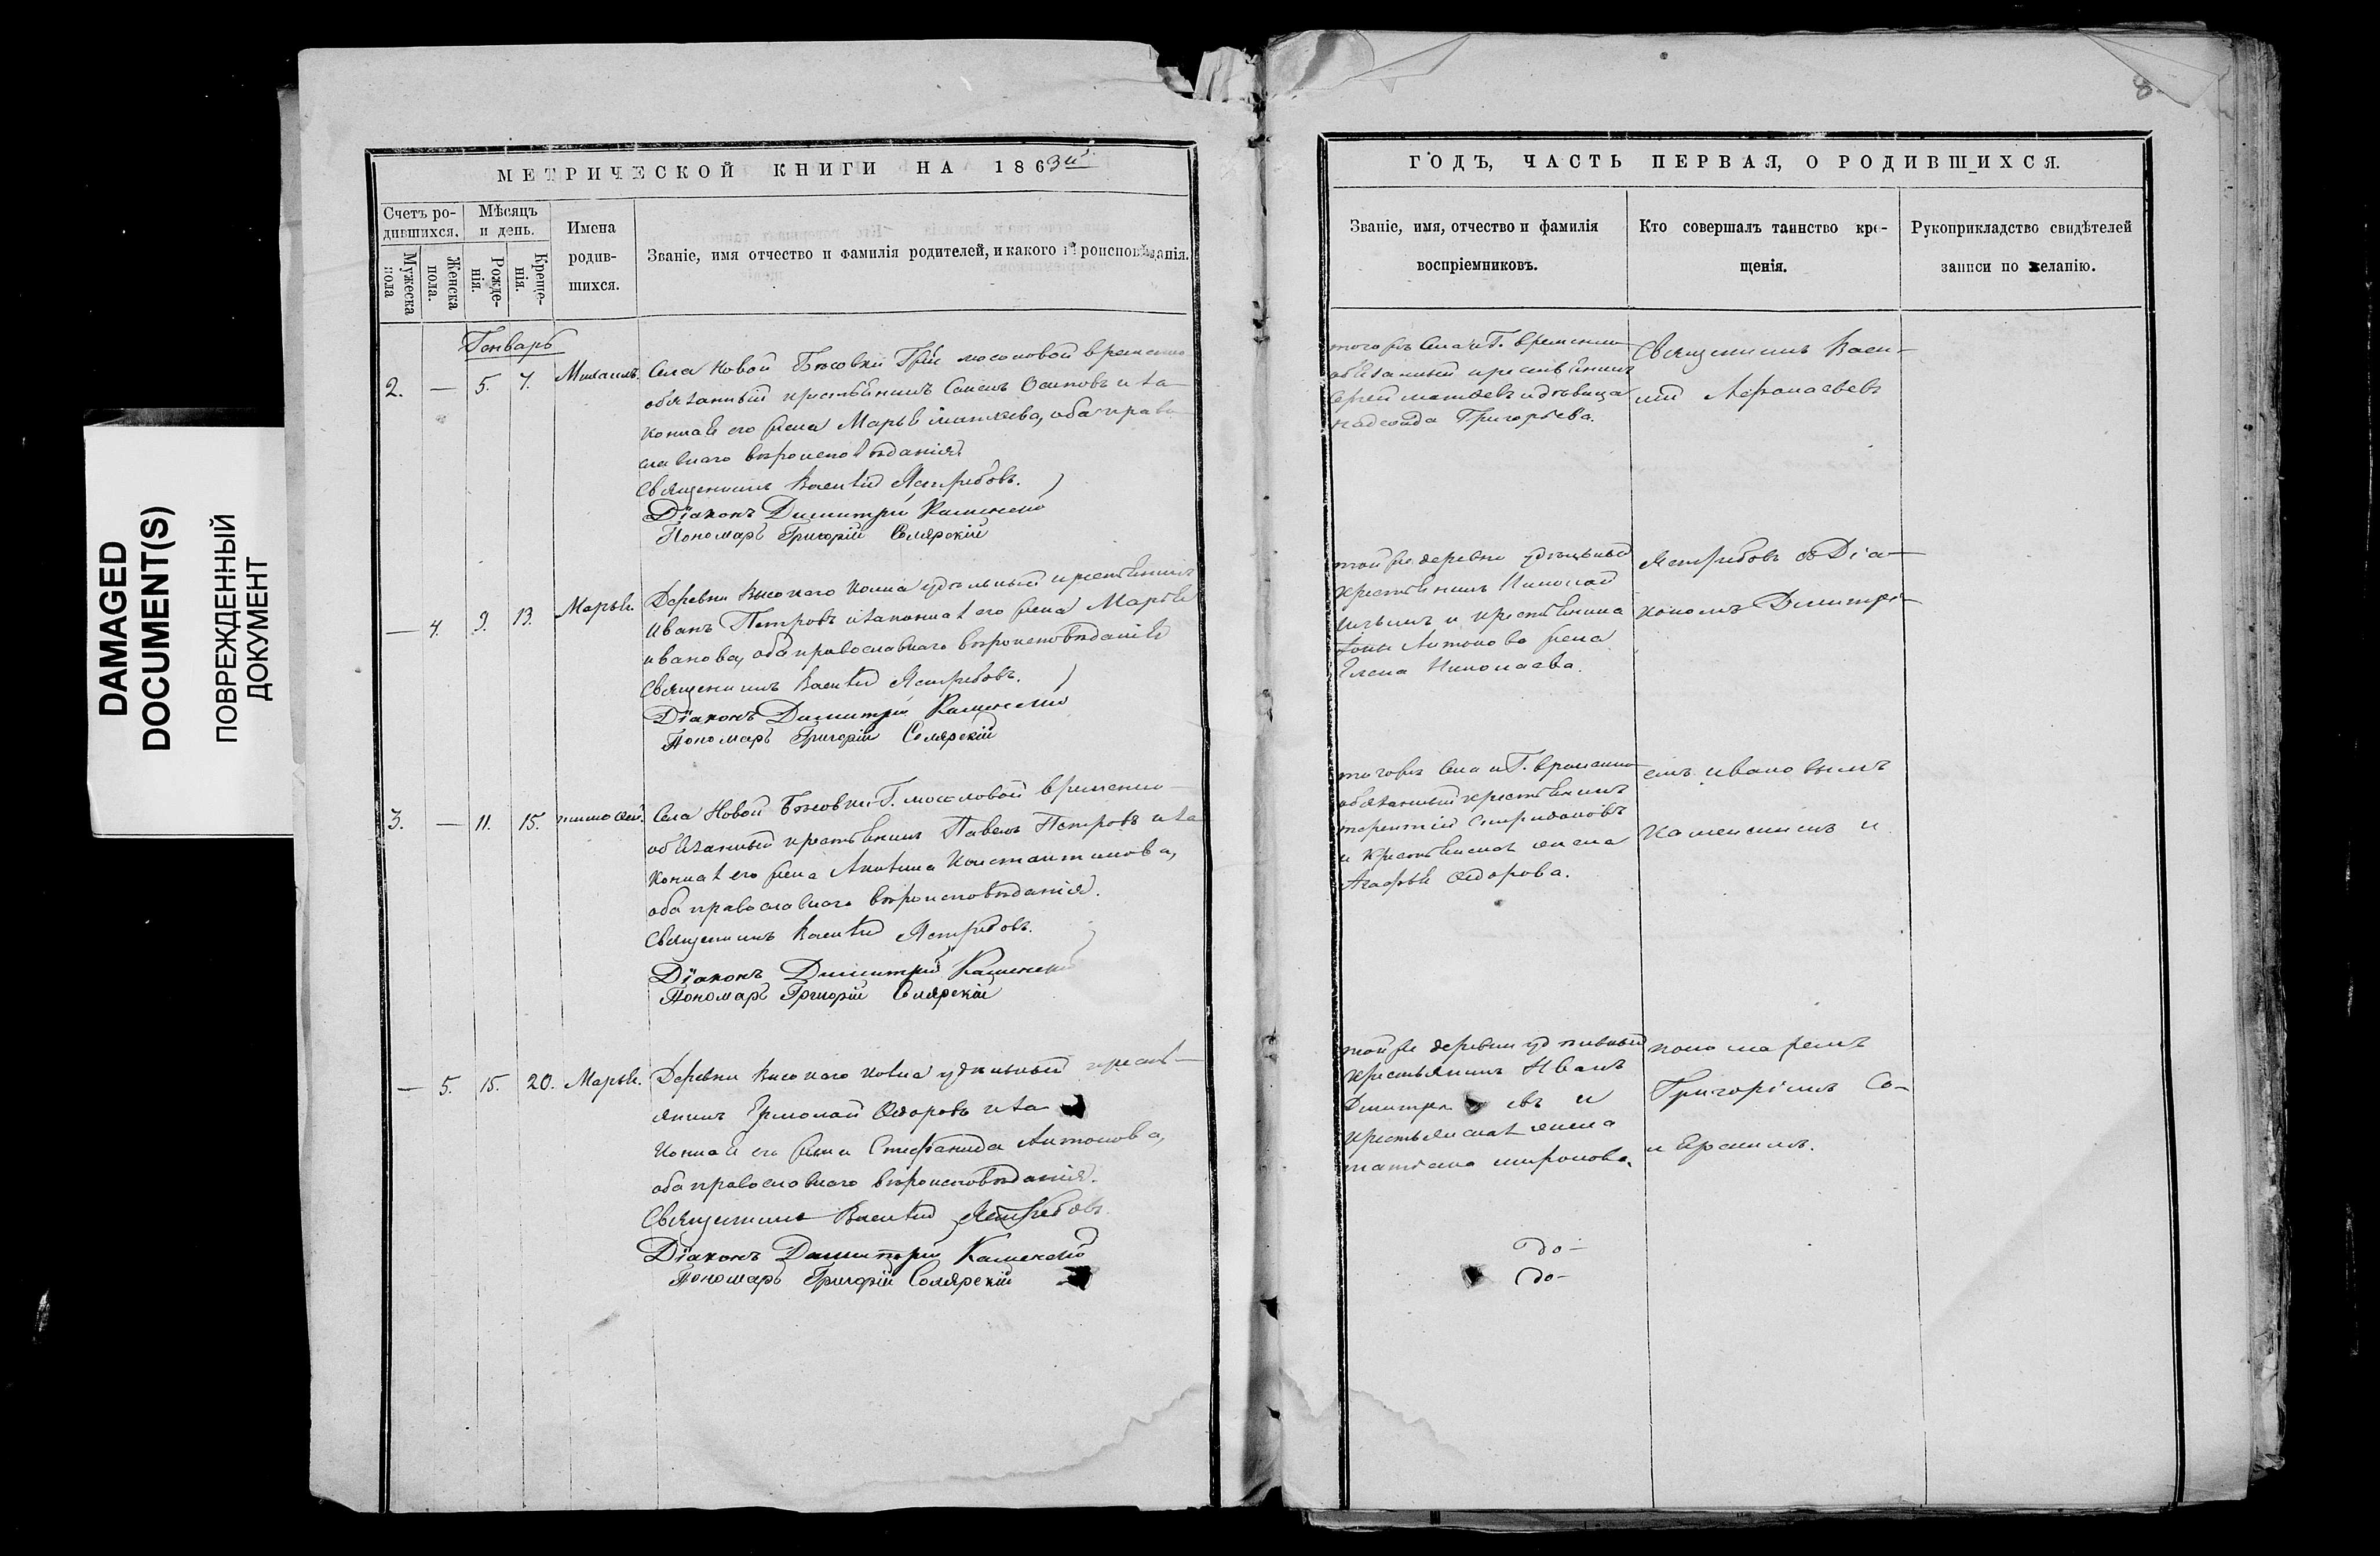 DAMAGED
DOCUMENT(S)
ПОВРЕЖДЕННЫЙ
ДОКУМЕНТ
МЕТРИЧЕСКОЙ КНИГИ НА 1863й
Счетъ ро-
дившихся.
Мѣсяцъ
и день.
Мужеска
пола
Женска
пола.
Рожде-
нія.
Креще-
нія.
Имена
родив-
шихся.
Званіе, имя отчество и фамилія родителей, и какого вѣроисповѣданія.
Генварь
2. — 5. 7. Михаилъ. Села Новой Бѣковки временно
обязанный крестьянинъ Осиповъ и за
конная его жена Марья, оба право
славнаго вѣроисповѣданія.
Священникъ Василій Ястребовъ.
Діаконъ Димитрій Каменскій
Пономарь Григорій Солярскій
— 4. 9. 13. Марья. Деревни Высокаго удѣльный крестьянинъ
Иванъ Петровъ и законная его жена Марья
Иванова, оба православнаго вѣроисповѣданія
Священникъ Василій Ястребовъ.
Діаконъ Димитрій Каменскій
Пономарь Григорій Солярскій
3. — 11. 15. Тимоѳей. Села Новой временно
обязанный крестьянинъ Павелъ Петровъ и за
конная его жена Константинова,
оба православнаго вѣроисповѣданія.
Священникъ Василій Ястребовъ.
Діаконъ Димитрій Каменскій
Пономарь Григорій Солярскій
— 5. 15. 20. Марья. Деревни Высокаго удѣльный кресть-
янинъ Ермолай Ѳедоровъ и за
конная его жена Стефанида Антонова,
оба православнаго вѣроисповѣданія.
Священникъ Василій Ястребовъ.
Діаконъ Димитрій Каменскій
Пономарь Григорій Солярскій
8
ГОДЪ, ЧАСТЬ ПЕРВАЯ, О РОДИВШИХСЯ.
Званіе, имя, отчество и фамилія
воспріемниковъ.
Кто совершалъ таинство кре-
щенія.
Рукоприкладство свидѣтелей
записи по желанію.
тогожъ села и Г. временно
обязанный крестьянинъ
Сергей и дѣвица
Надежда Григорьева.
Священникъ Васи-
лій Аѳанасьевъ
той же деревни удѣльный
крестьянинъ Николай
и крестьянина
Антонова жена
Елена Николаева.
Ястребовъ съ Діа-
кономъ Димитрі-
тогожъ села и Г. временно
обязанный крестьянинъ
Терентій Спиридоновъ
и крестьянская жена
Агафья Ѳедорова.
емъ Ивановымъ
Каменскимъ и
той же деревни удѣльный
крестьянинъ Иванъ
Дмитріевъ и
крестьянская жена
Татьяна Миронова.
пономаремъ
Григоріемъ Со-
лярскимъ.
до-
до-